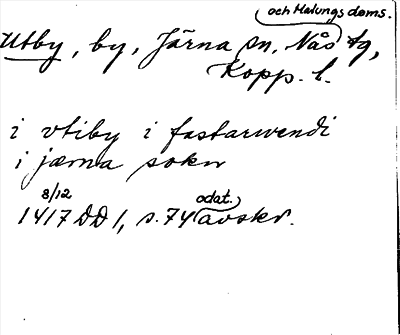 och Malungs doms.
Utby, by, Järna sn, Nås tg,
Kopp. l.
i vtiby i fastarwendi
i jærna sokn
8/12 odat.
1417 DD 1, s. 74 avskr.